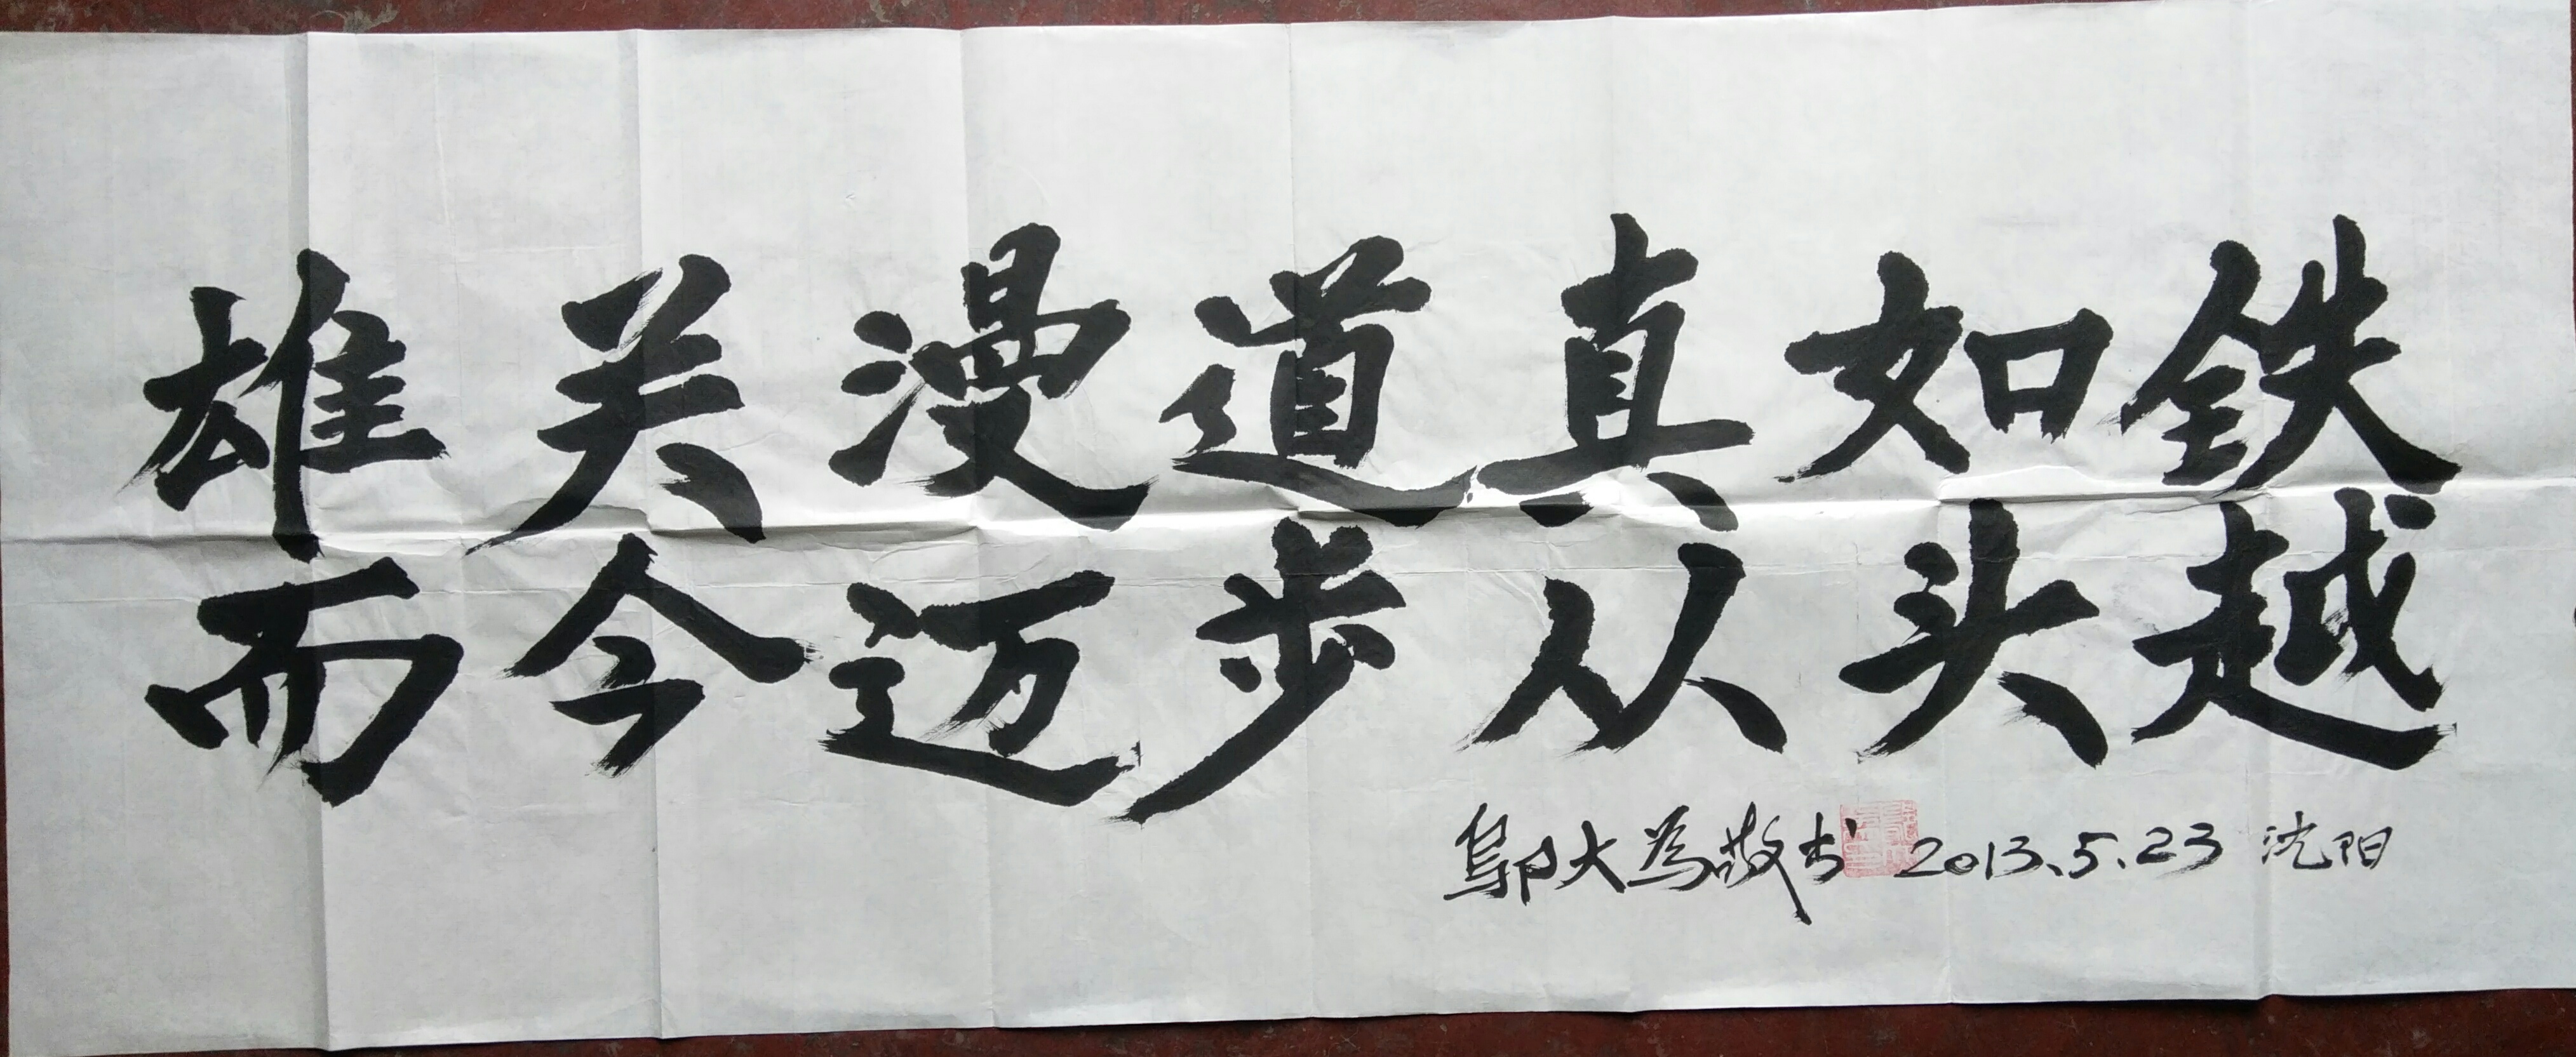 雄关漫道真如鉄
而今迈步从头越
鄔大為敬书 2013.5.23 沈阳